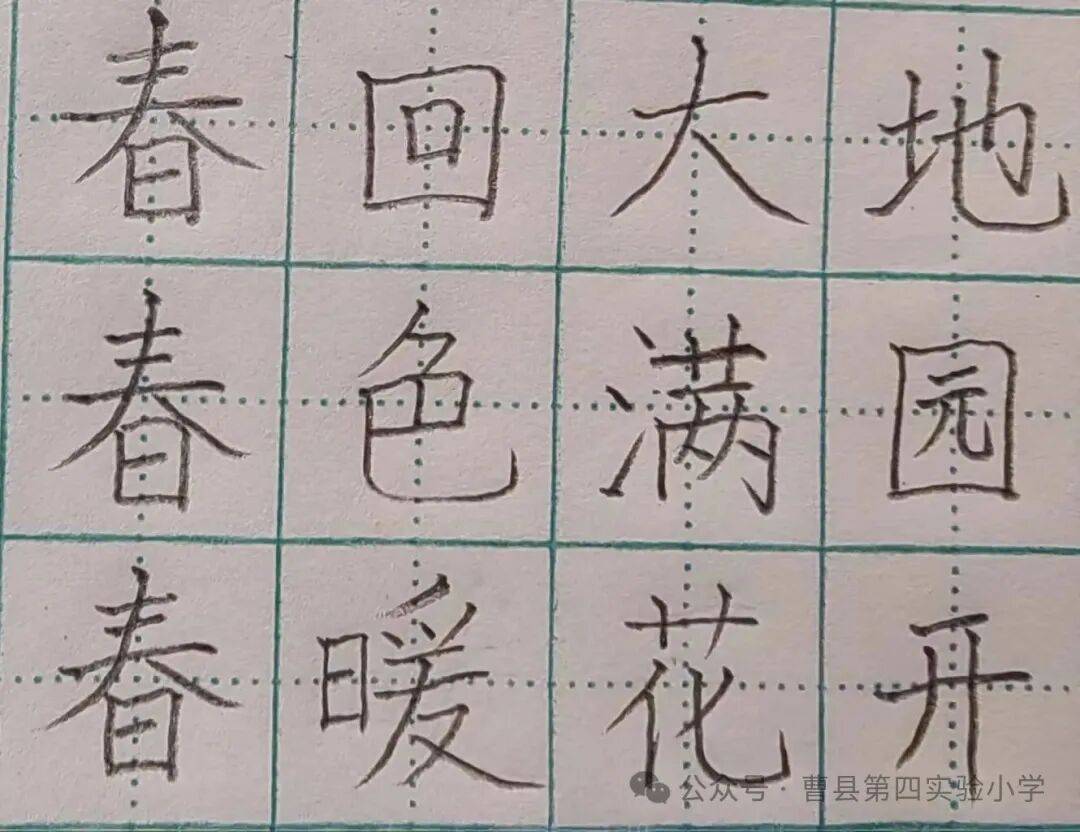 春回大地
春色满园
春暖花开
公众号·曹县第四实验小学